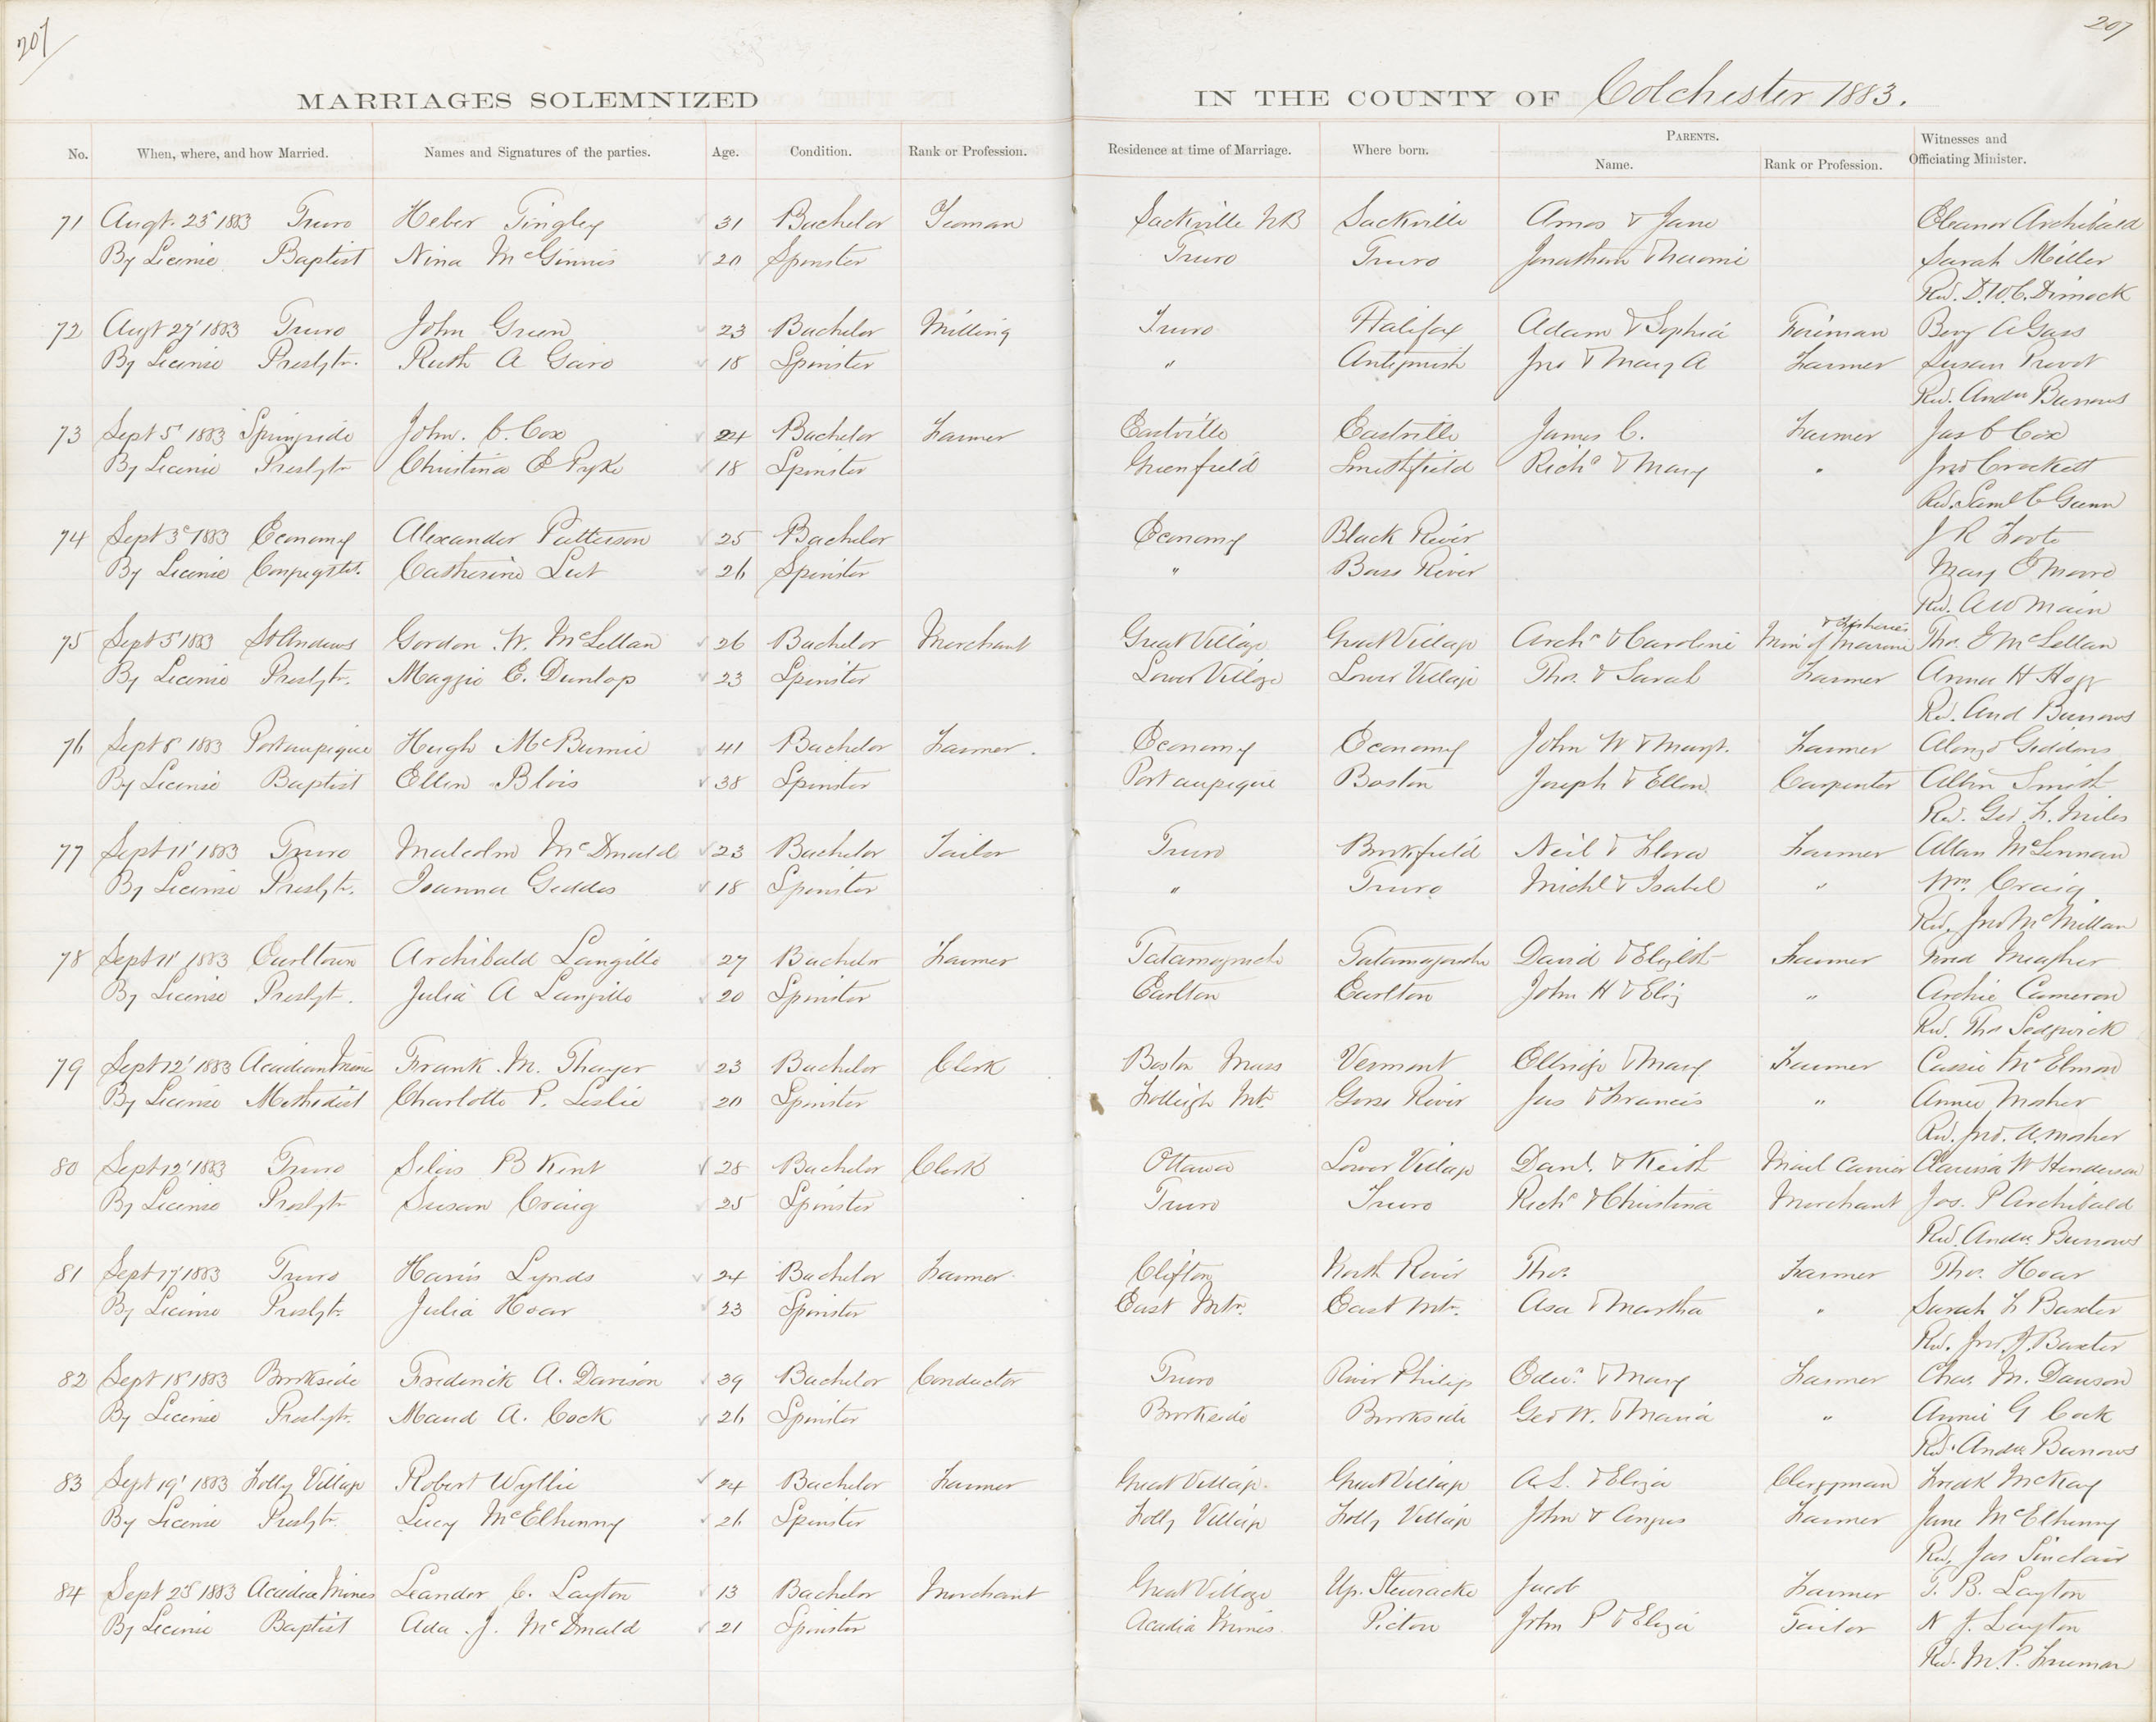 207
207
MARRIAGES SOLEMNIZED IN THE COUNTY OF Colchester 1883.
No. When, where, and how Married. Names and Signatures of the parties. Age. Condition. Rank or Profession. Residence at time of Marriage. Where born. PARENTS. Name. Rank or Profession. Witnesses and Officiating Minister.
71 Augt. 23 1883 Truro Heber Tingley 31 Bachelor Yeoman Sackville NB Sackville Amos & Jane Eleanor Archibald
By License Baptist Nina McGinnis 20 Spinster Truro Truro Jonathan & Naomi Sarah Miller
Rev. D.W.C. Dimock
72 Augt 27 1883 Truro John Green 23 Bachelor Milling Truro Halifax Adam & Sophia Foreman Benj A Gass
By License Presbytr. Ruth A Gairo 18 Spinster " Antigonish Jno & Mary A Farmer Susan
Rev. Andw Burrows
73 Sept 5 1883 Springside John. C. Cox 24 Bachelor Farmer Eastville Eastville James C. Farmer Jas C Cox
By License Presbytr Christina E Pyke 18 Spinster Greenfield Smithfield Richd & Mary " Jno Crockett
Rev. Saml C Gunn
74 Sept 3d 1883 Economy Alexander Patterson 25 Bachelor Economy Black River J R Foote
By License Congregtl. Catherine 26 Spinster " Bass River Mary
Rev. A W Main
75 Sept 5 1883 St Andrews Gordon W. McLellan 26 Bachelor Merchant Great Village Great Village Archd & Caroline Min of Marine & Fisheries Thos. McLellan
By License Presbytr. Maggie E. Dunlop 23 Spinster Lower Village Lower Village Thos. & Sarah Farmer Anna H
Rev. And Burrows
76 Sept 8 1883 Portaupique Hugh McBurnie 41 Bachelor Farmer. Economy Economy John W & Margt. Farmer Alonzo Giddens
By License Baptist Ellen Blois 38 Spinster Portaupique Boston Joseph & Ellen Carpenter Albin Smith
Rev. Geo. F. Miles
77 Sept 11 1883 Truro Malcolm McDonald 23 Bachelor Tailor Truro Brookfield Neil & Flora Farmer Allan McLennan
By License Presbytr. Joanna Geddes 18 Spinster " Truro Michl & Isabel " Wm. Craig
Rev. Jno McMillan
78 Sept 11 1883 Earltown Archibald Langille 27 Bachelor Farmer Tatamagouche Tatamagouche David & Elizbth Farmer Meagher
By License Presbyt. Julia A Langille 20 Spinster Earlton Earlton John H & Eliz " Archie Cameron
Rev. Thos Sedgwick
79 Sept 12 1883 Acadian Mines Frank. M. Thayer 23 Bachelor Clerk Boston Mass Vermont & Mary Farmer Cassie McElmon
By License Methodist Charlotte P. Leslie 20 Spinster Folleigh Mt. River Jas & Francis " Annie Mosher
Rev. Jno. A Mosher
80 Sept 12 1883 Truro Silas B Kent 28 Bachelor Clerk Ottawa Lower Village Danl. & Keith Mail Carrier Clarissa W Henderson
By License Presbytr Susan Craig 25 Spinster Truro Truro Richd & Christina Merchant Jos. P Archibald
Rev. Andw. Burrows
81 Sept 17 1883 Truro Harris Lynds 24 Bachelor Farmer. Clifton North River Thos. Farmer Thos. Hoar
By License Presbytr. Julia Hoar 23 Spinster East Mtn. East Mtn. Asa & Martha " Sarah F Baxter
Rev. Jno J. Baxter
82 Sept 18 1883 Brookside Frederick A. Davison 39 Bachelor Conductor Truro River Philip Edwd. & Mary Farmer Chas. M. Dawson
By License Presbytr. Maud A. Cock 26 Spinster Brookside Brookside Geo W. & Maria " Annie G Cock
Rev. Andw Burrows
83 Sept 19 1883 Folly Village Robert Wyllie 24 Bachelor Farmer Great Village. Great Village A. L. & Eliza Clergyman Fredk McKay
By License Presbytr. Lucy McElhenny 26 Spinster Folly Village Folly Village John & Angus Farmer Jane McElhenny
Rev. Jas Sinclair
84 Sept 25 1883 Acadia Mines Leander C. Layton 13 Bachelor Merchant Great Village Up. Stewiacke Jacob Farmer T. B. Layton
By License Baptist Ada. J. McDonald 21 Spinster Acadia Mines. Pictou John P & Eliza Tailor N J. Layton
Rev. M. P. Freeman